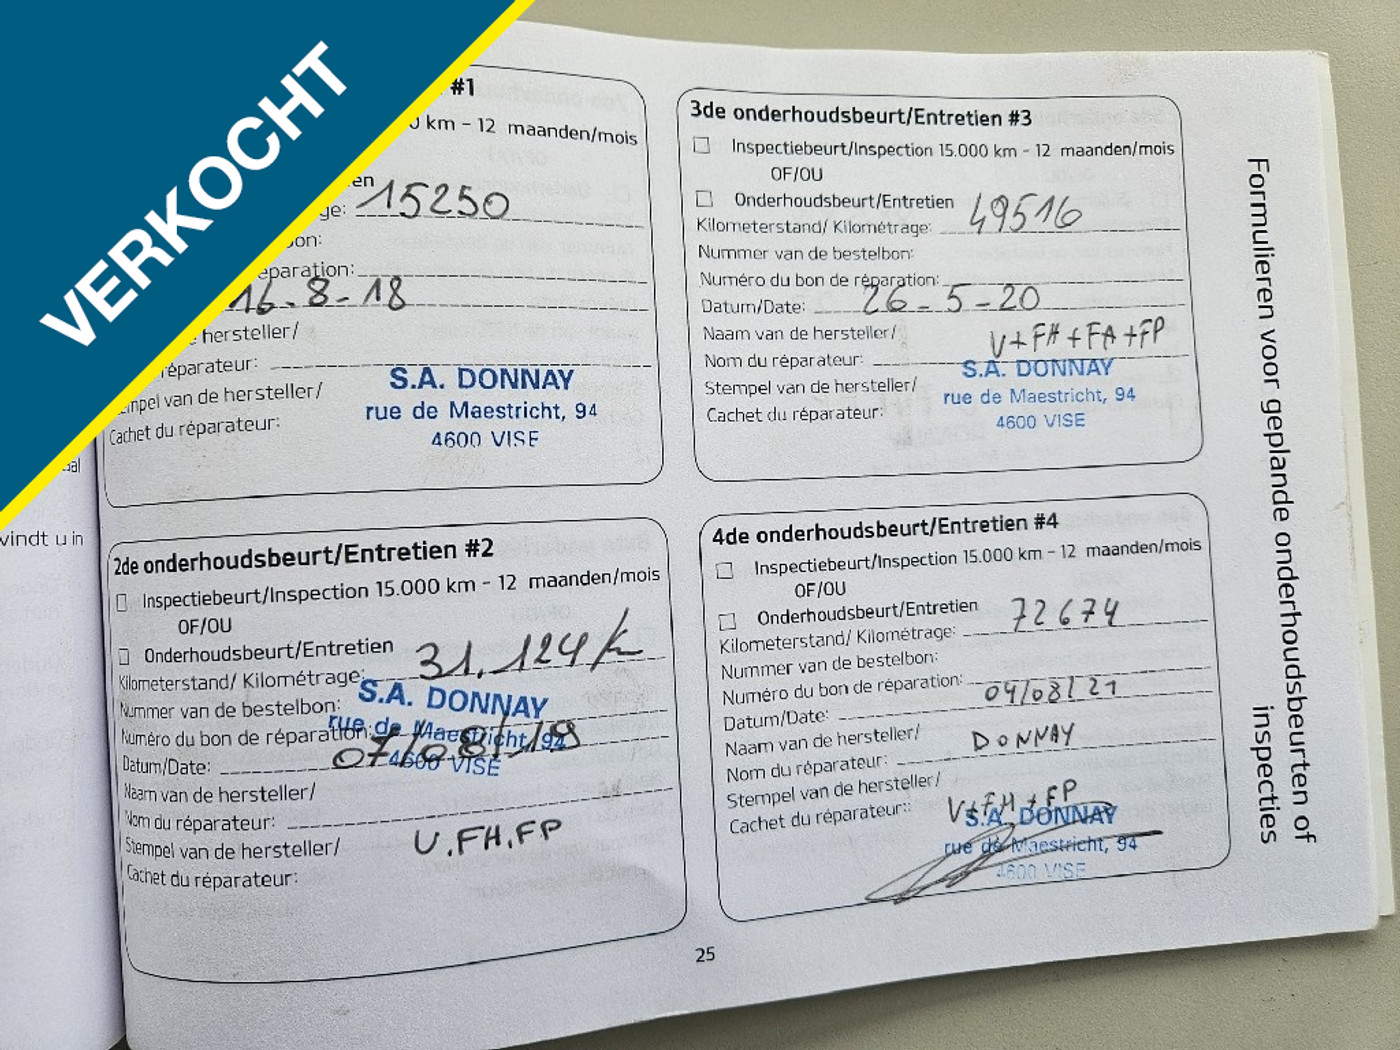 VERKOCHT
#1
km - 12 maanden/mois
en
ge: 15250
bon:
éparation:
16-8-18
hersteller/
réparateur:
Stempel van de hersteller/
Cachet du réparateur:
S.A. DONNAY
rue de Maestricht, 94
4600 VISE
vindt u in
2de onderhoudsbeurt/Entretien #2
Inspectiebeurt/Inspection 15.000 km - 12 maanden/mois
OF/OU
Onderhoudsbeurt/Entretien
Kilometerstand/ Kilométrage: 31.124 k
Nummer van de bestelbon:
Numéro du bon de réparation:
Datum/Date: 07/08/19
Naam van de hersteller/
Nom du réparateur:
Stempel van de hersteller/
Cachet du réparateur:
V.FH.FP
S.A. DONNAY
rue de Maestricht, 94
4600 VISE
3de onderhoudsbeurt/Entretien #3
Inspectiebeurt/Inspection 15.000 km - 12 maanden/mois
OF/OU
Onderhoudsbeurt/Entretien
Kilometerstand/ Kilométrage: 49516
Nummer van de bestelbon:
Numéro du bon de réparation:
Datum/Date: 26-5-20
Naam van de hersteller/
Nom du réparateur: V+FH+FA+FP
Stempel van de hersteller/
Cachet du réparateur:
S.A. DONNAY
rue de Maestricht, 94
4600 VISE
4de onderhoudsbeurt/Entretien #4
Inspectiebeurt/Inspection 15.000 km - 12 maanden/mois
OF/OU
Onderhoudsbeurt/Entretien
Kilometerstand/ Kilométrage: 72674
Nummer van de bestelbon:
Numéro du bon de réparation:
Datum/Date: 04/08/21
Naam van de hersteller/
Nom du réparateur: DONNAY
Stempel van de hersteller/
Cachet du réparateur::
V+FH+FP
S.A. DONNAY
rue de Maestricht, 94
4600 VISE
25
Formulieren voor geplande onderhoudsbeurten of
inspecties